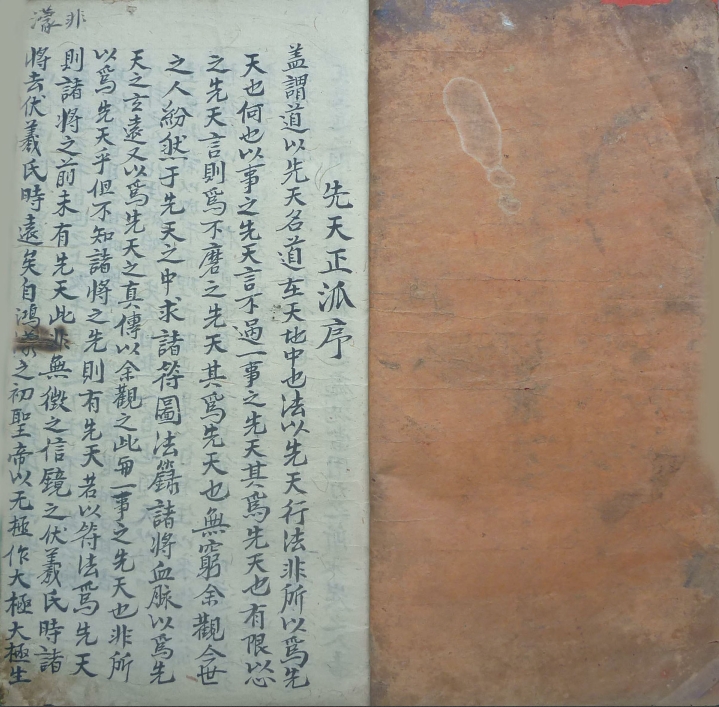 先天正派序
盖謂道以先天名道在天地中也法以先天行法非所以為先
天也何也以事之先天言不過一事之先天其為先天也有限以
之先天言則為不磨之先天其為先天也無窮余觀今世
之人紛然于先天之中求諸符圖法籙諸將血脈以為先
天之玄遠又以為先天之真傳以余觀之此毋一事之先天也非所
以為先天乎但不知諸將之先則有先天若以符法為先天
則諸將之前未有先天此非無徵之信鏡之伏羲氏時諸
將去伏羲氏時遠矣自鴻之初聖帝以无極作大極大極生
濛 非